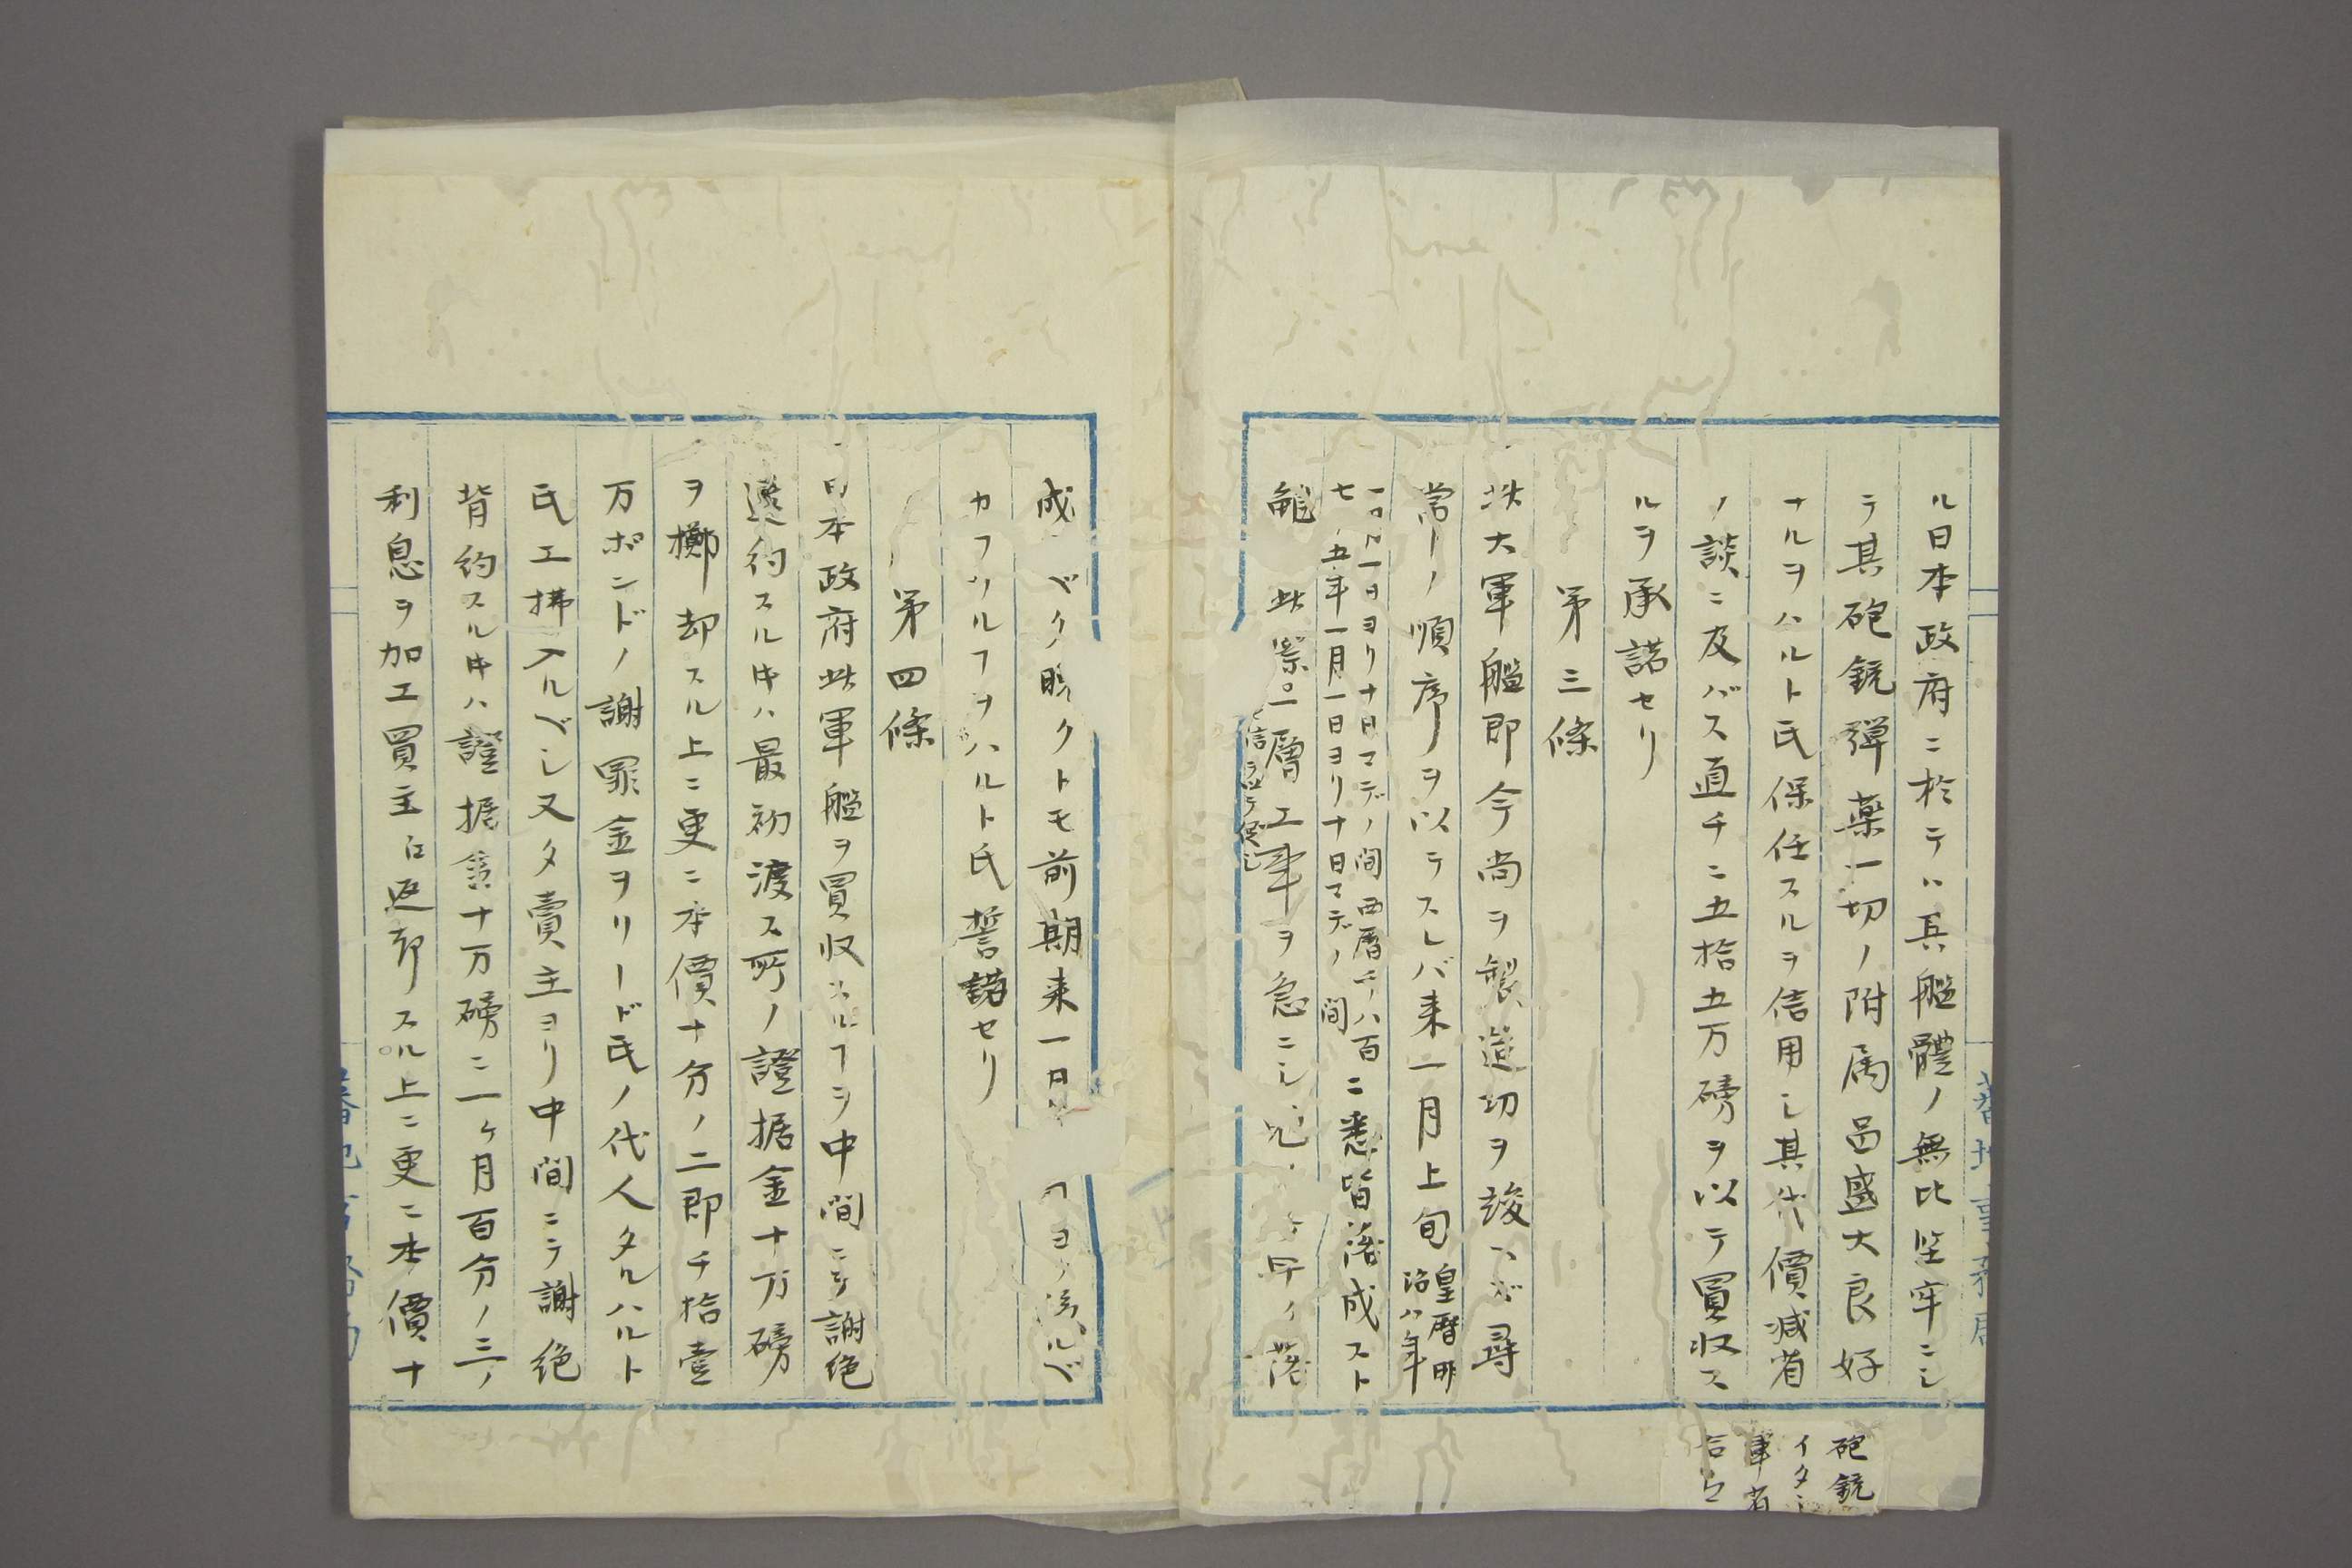 ル日本政府ニ於テハ兵艦體ノ無比堅牢ニシ
テ其砲銃弾薬一切ノ附属品盛大良好
ナルヲハルト氏保任スルヲ信用シ其代價減省
ノ談ニ及バス直チニ五拾五万磅ヲ以テ買収ス
ルヲ承諾セリ
第三條
此大軍艦即今尚ヲ製造切ヲ竣ヘズ尋
常ノ順序ヲ以テスレバ来一月上旬
皇暦明
治八年
一月一日ヨリ十日マデノ間西暦千八百
七十五年一月一日ヨリ十日マデノ間
ニ悉皆落成スト
雖此際一層工事ヲ急ニシ
落
砲銃
イタシ
軍省
成ベク晩クトモ前期来一月
ヨリ後ルベ
カラサルヿヲハルト氏誓諾セリ
第四條
日本政府此軍艦ヲ買収スルヿヲ中間ニテ謝絶
違約スル时ハ最初渡ス所ノ證据金十万磅
ヲ擲却スル上ニ更ニ本價十分ノ二即チ拾壹
万ポンドノ謝罪金ヲリード氏ノ代人タルハルト
氏エ拂入ルベシ又タ賣主ヨリ中間ニテ謝絶
背約スル时ハ證据金十万磅ニ一ヶ月百分ノ三ノ
利息ヲ加エ買主エ返却スル上ニ更ニ本價十
蕃地事務局